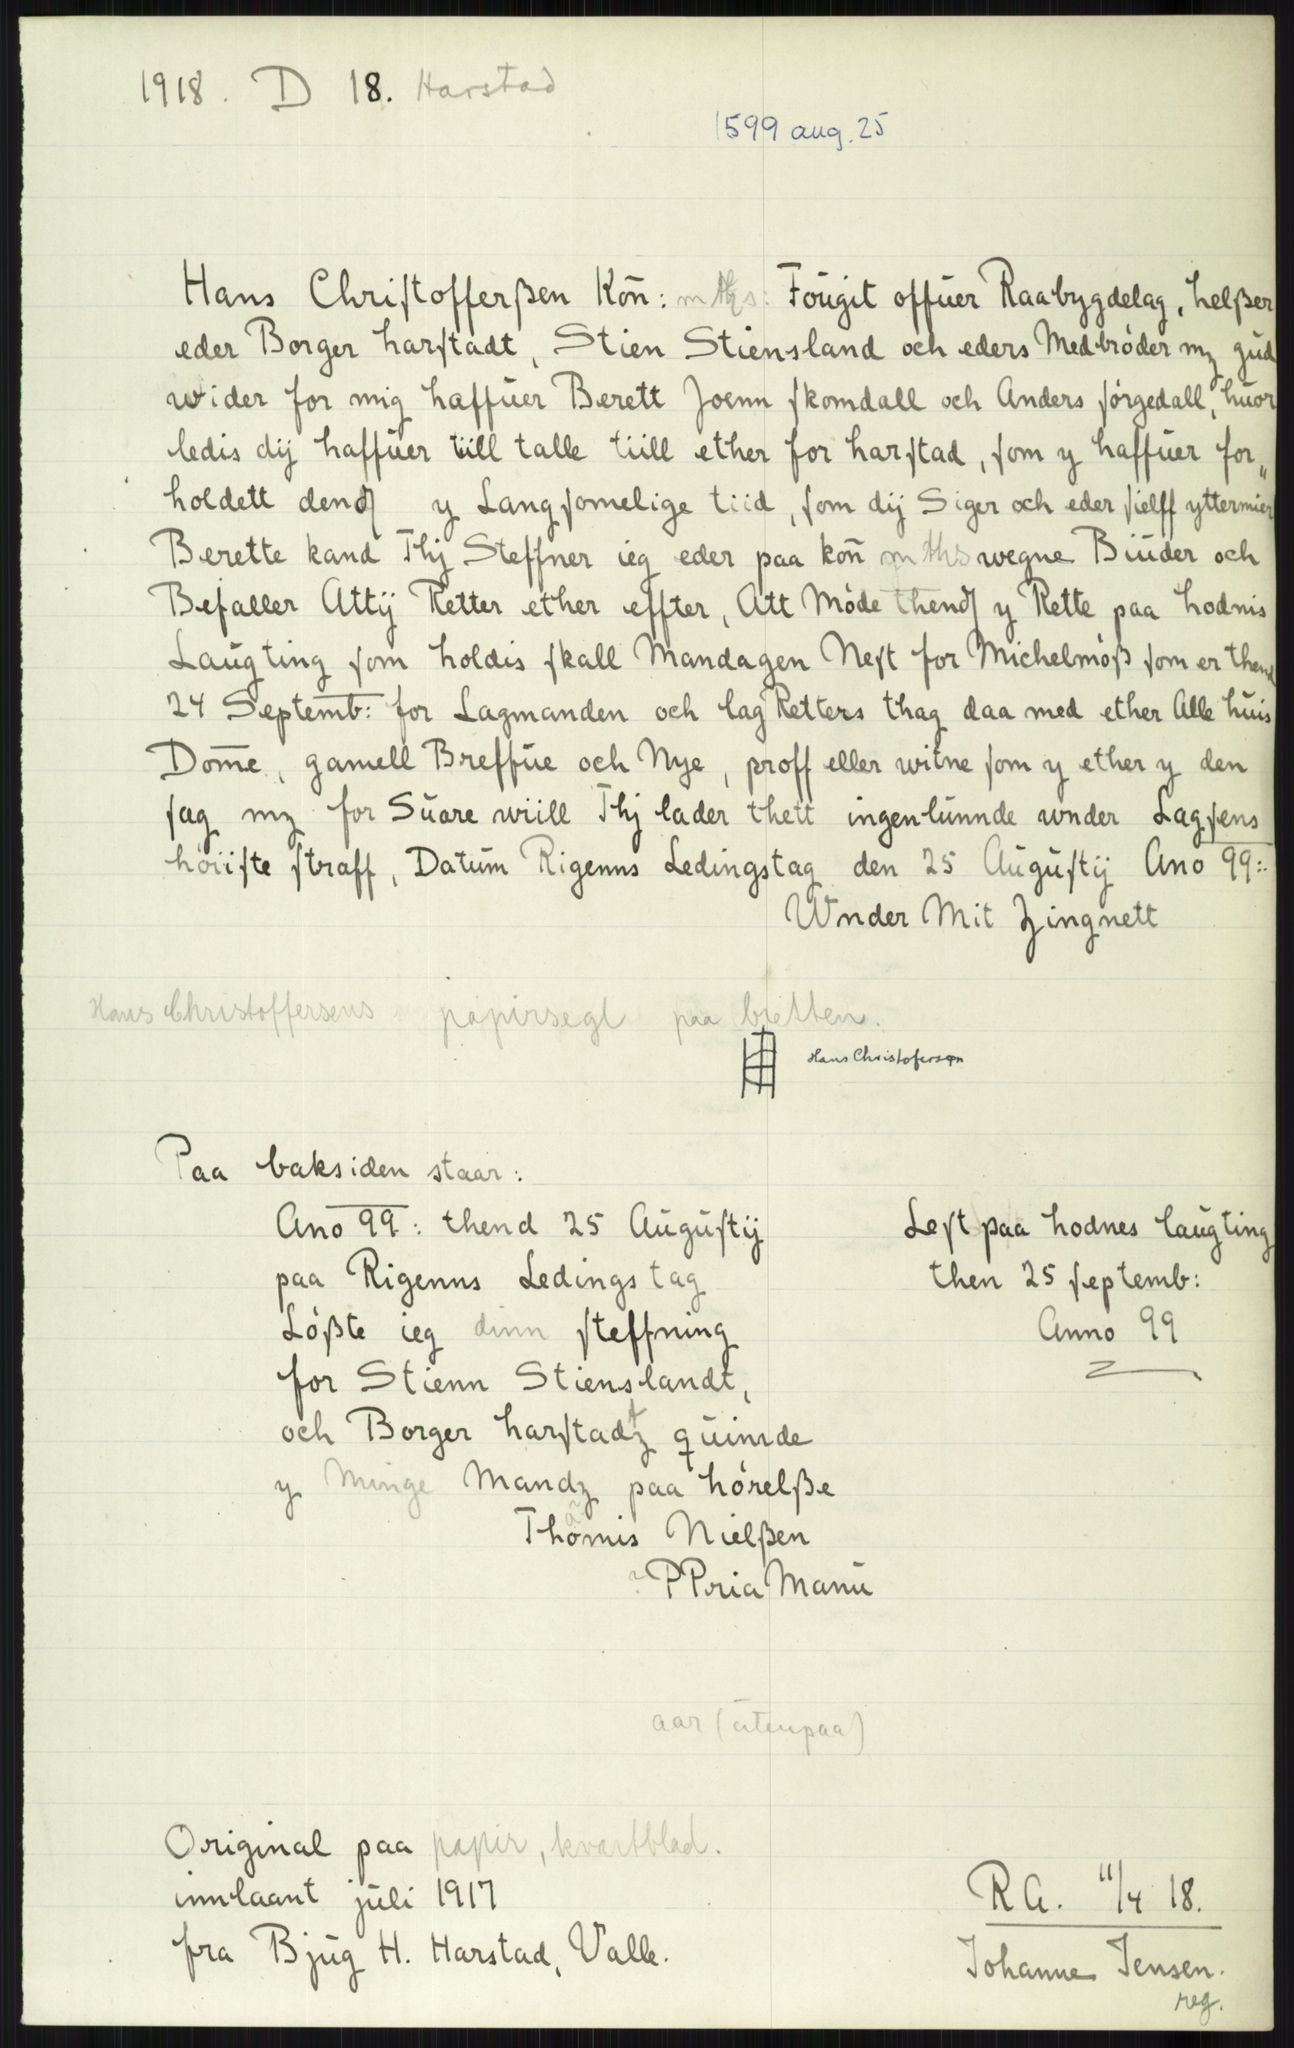 1918. D 18. Harstad
1599 aug. 25
Hans Chriſtofferßen Kon̄: mtts: Foŭgit offŭer Raabygdelag, helßer
eder Borger harſtadt, Stien Stiensland och eders Medbróder mz gŭd
wider for mig haffŭer Berett Joenn ſkomdall och Anders ſórgedall, hŭor
ledis dij haffŭer tiill talle tiill ether for harſtad, ſom y haffŭer for„
holdett y Langſomelige tiid, ſom dij Siger och eder ſielff yttermier
Berette kand Thj Steffner ieg eder paa kon̄ mtts wegne Biŭder och
Befaller Attij Retter ether effter, Att Móde y Rette paa hodnis
Laŭgting ſom holdis ſkall Mandagen Neſt for Michelmóß ſom er thend
24 Septemb: for Lagmanden och lag Retters thag daa med ether Alle hŭis
Dom̄e, gamell Breffŭe och Nye, proff eller witne ſom y ether y den
ſag mz for Sŭare wiill Thj lader thett ingenlŭnnde wnder Lagſens
hóiiſte ſtraff, Datŭm Rigenns Ledingstag den 25 Aŭgŭſtij Ano 99:
Wnder Mit Zingnett
Hans Christoffersens papirsegl paa bretten.
Hans Christofersøn
Paa baksiden staar:
Ano 99: thend 25 Aŭgŭſtij
paa Rigenns Ledings tag
Lóßte ieg dinn ſteffning
for Stienn Stienslandt,
och Borger harſtadz t qŭinde
y Minge Mandz paa hórelße
Thomis Nielßen
? PPria Manŭ
Leſt paa hodnes laŭgting
then 25 ſeptemb:
Anno 99
aar (ŭtenpaa)
Original paa papir, kvartblad.
innlaant jŭli 1917
fra Bjŭg H. Harstad, Valle.
R A. 11/4 18.
Johanne Jensen.
reg.